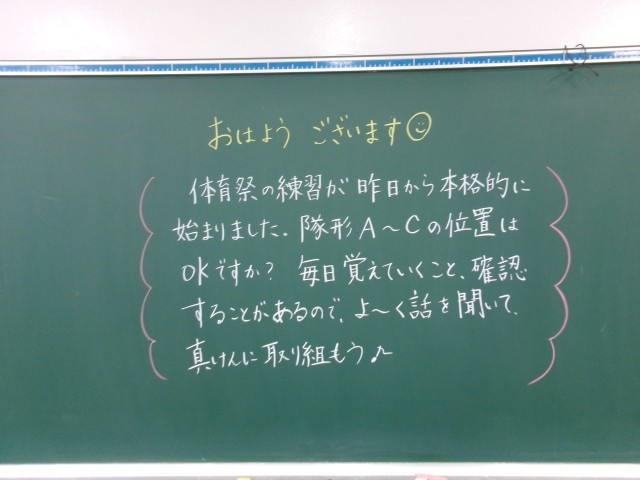 おはよう ございます☺
体育祭の練習が昨日から本格的に
始まりました。隊形A〜Cの位置は
OKですか? 毎日覚えていくこと、確認
することがあるので、よ〜く話を聞いて、
真けんに取り組もう♪